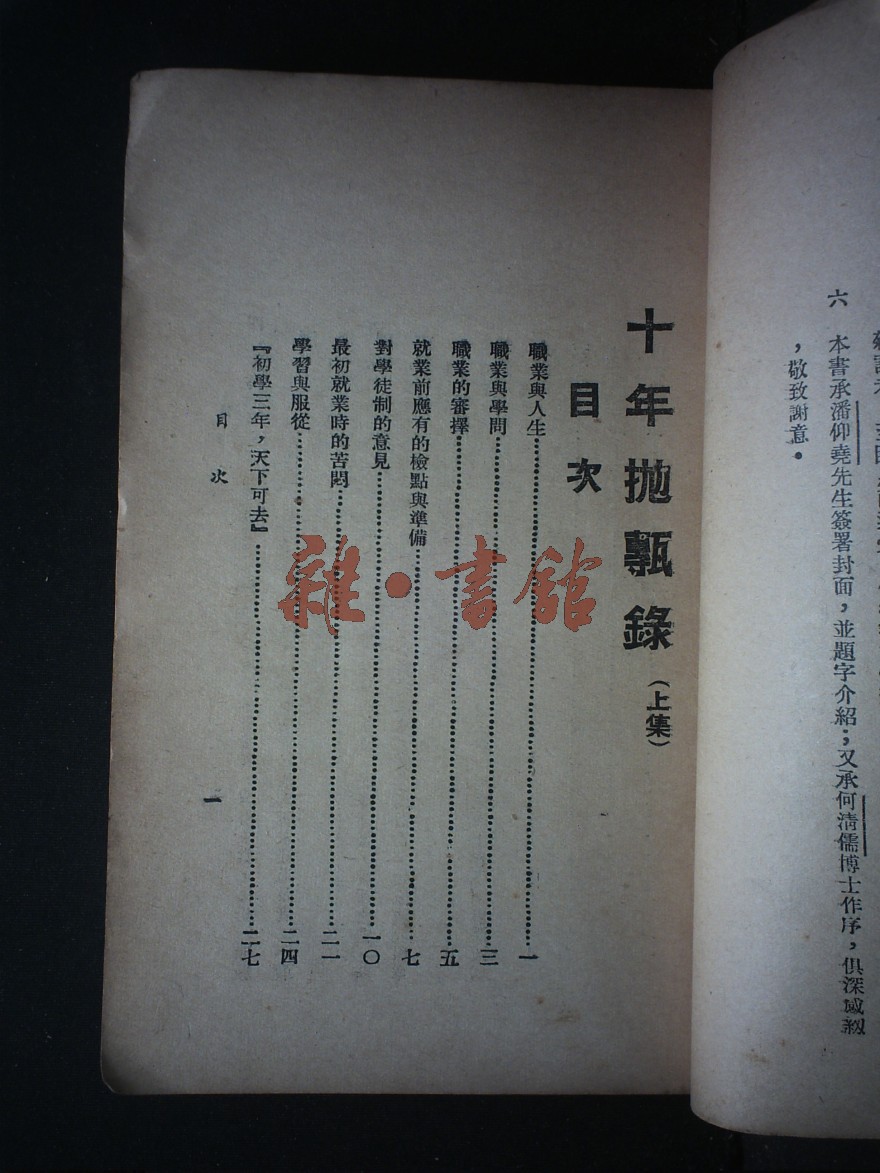 六　本書承潘仰堯先生簽署封面，並題字介紹；又承何清儒博士作序，俱深感紉
，敬致謝意。
十年抛甎錄（上集）
目次
職業與人生……………………一
職業與學問……………………三
職業的審擇……………………五
就業前應有的檢點與準備……………………七
對學徒制的意見……………………一〇
最初就業時的苦悶……………………二一
學習與服從……………………二四
『初學三年，天下可去』……………………二七
目次　一
雜·書館